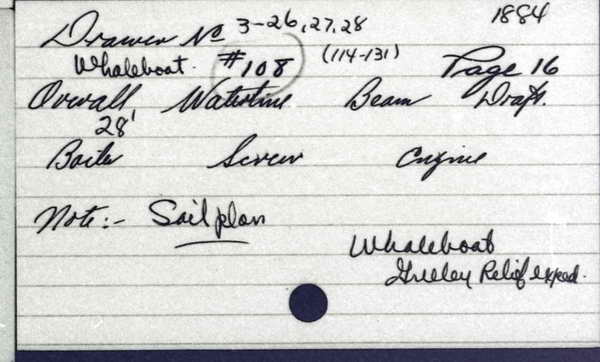 Drawer No 3-26,27,28 1884
Whaleboat. #108 (114-131) Page 16
Overall Waterline Beam Draft.
28'
Boiler Screw Engine
Note:- Sail plan
Whaleboat
Greeley Relief exped.